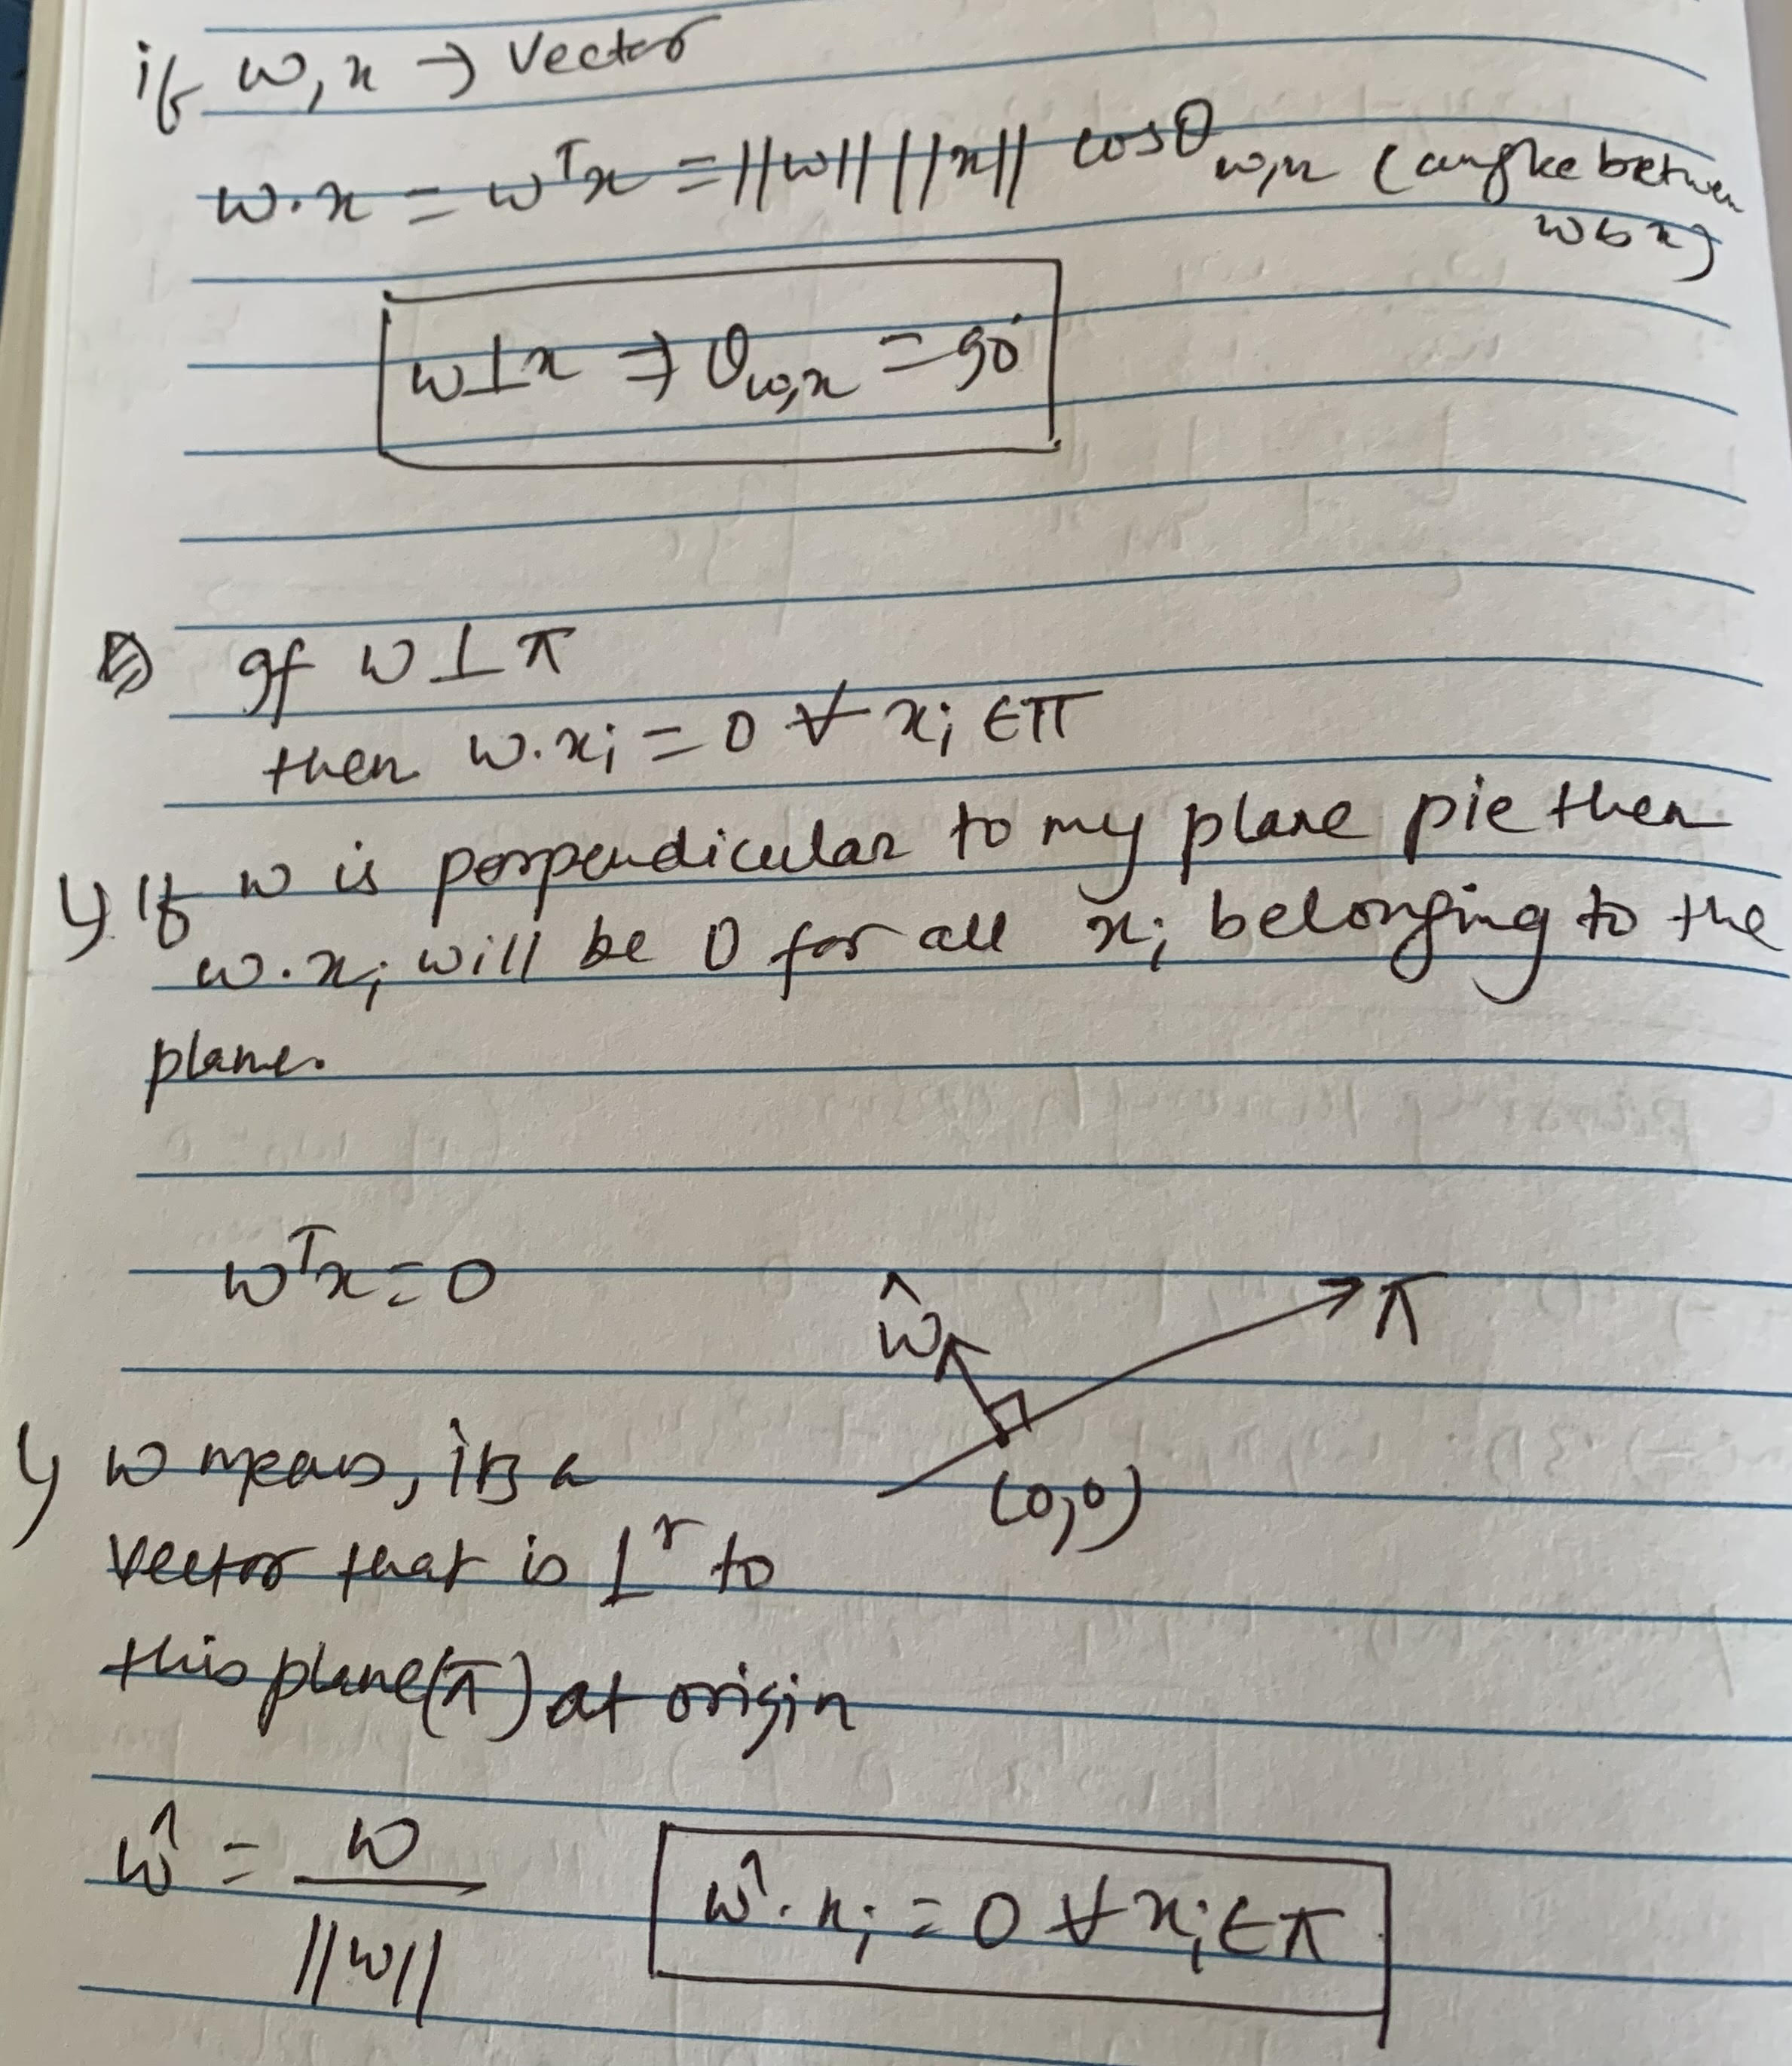 if w, x → Vector
w.x = wᵀx = ||w|| ||x|| cosθ w,x (angke between
w & x)
w⊥x ⇒ θw,x = 90°
gf w ⊥ π
then w.xi = 0 ∀ xi ∈ π
↳ If w is perpendicular to my plane pie then
w.xi will be 0 for all xi belonging to the
plane.
wᵀx = 0
ŵ
π
(0,0)
↳ w means, its a
vector that is ⊥ʳ to
this plane(π) at origin
ŵ = w
||w||
ŵ.xi = 0 ∀ xi ∈ π